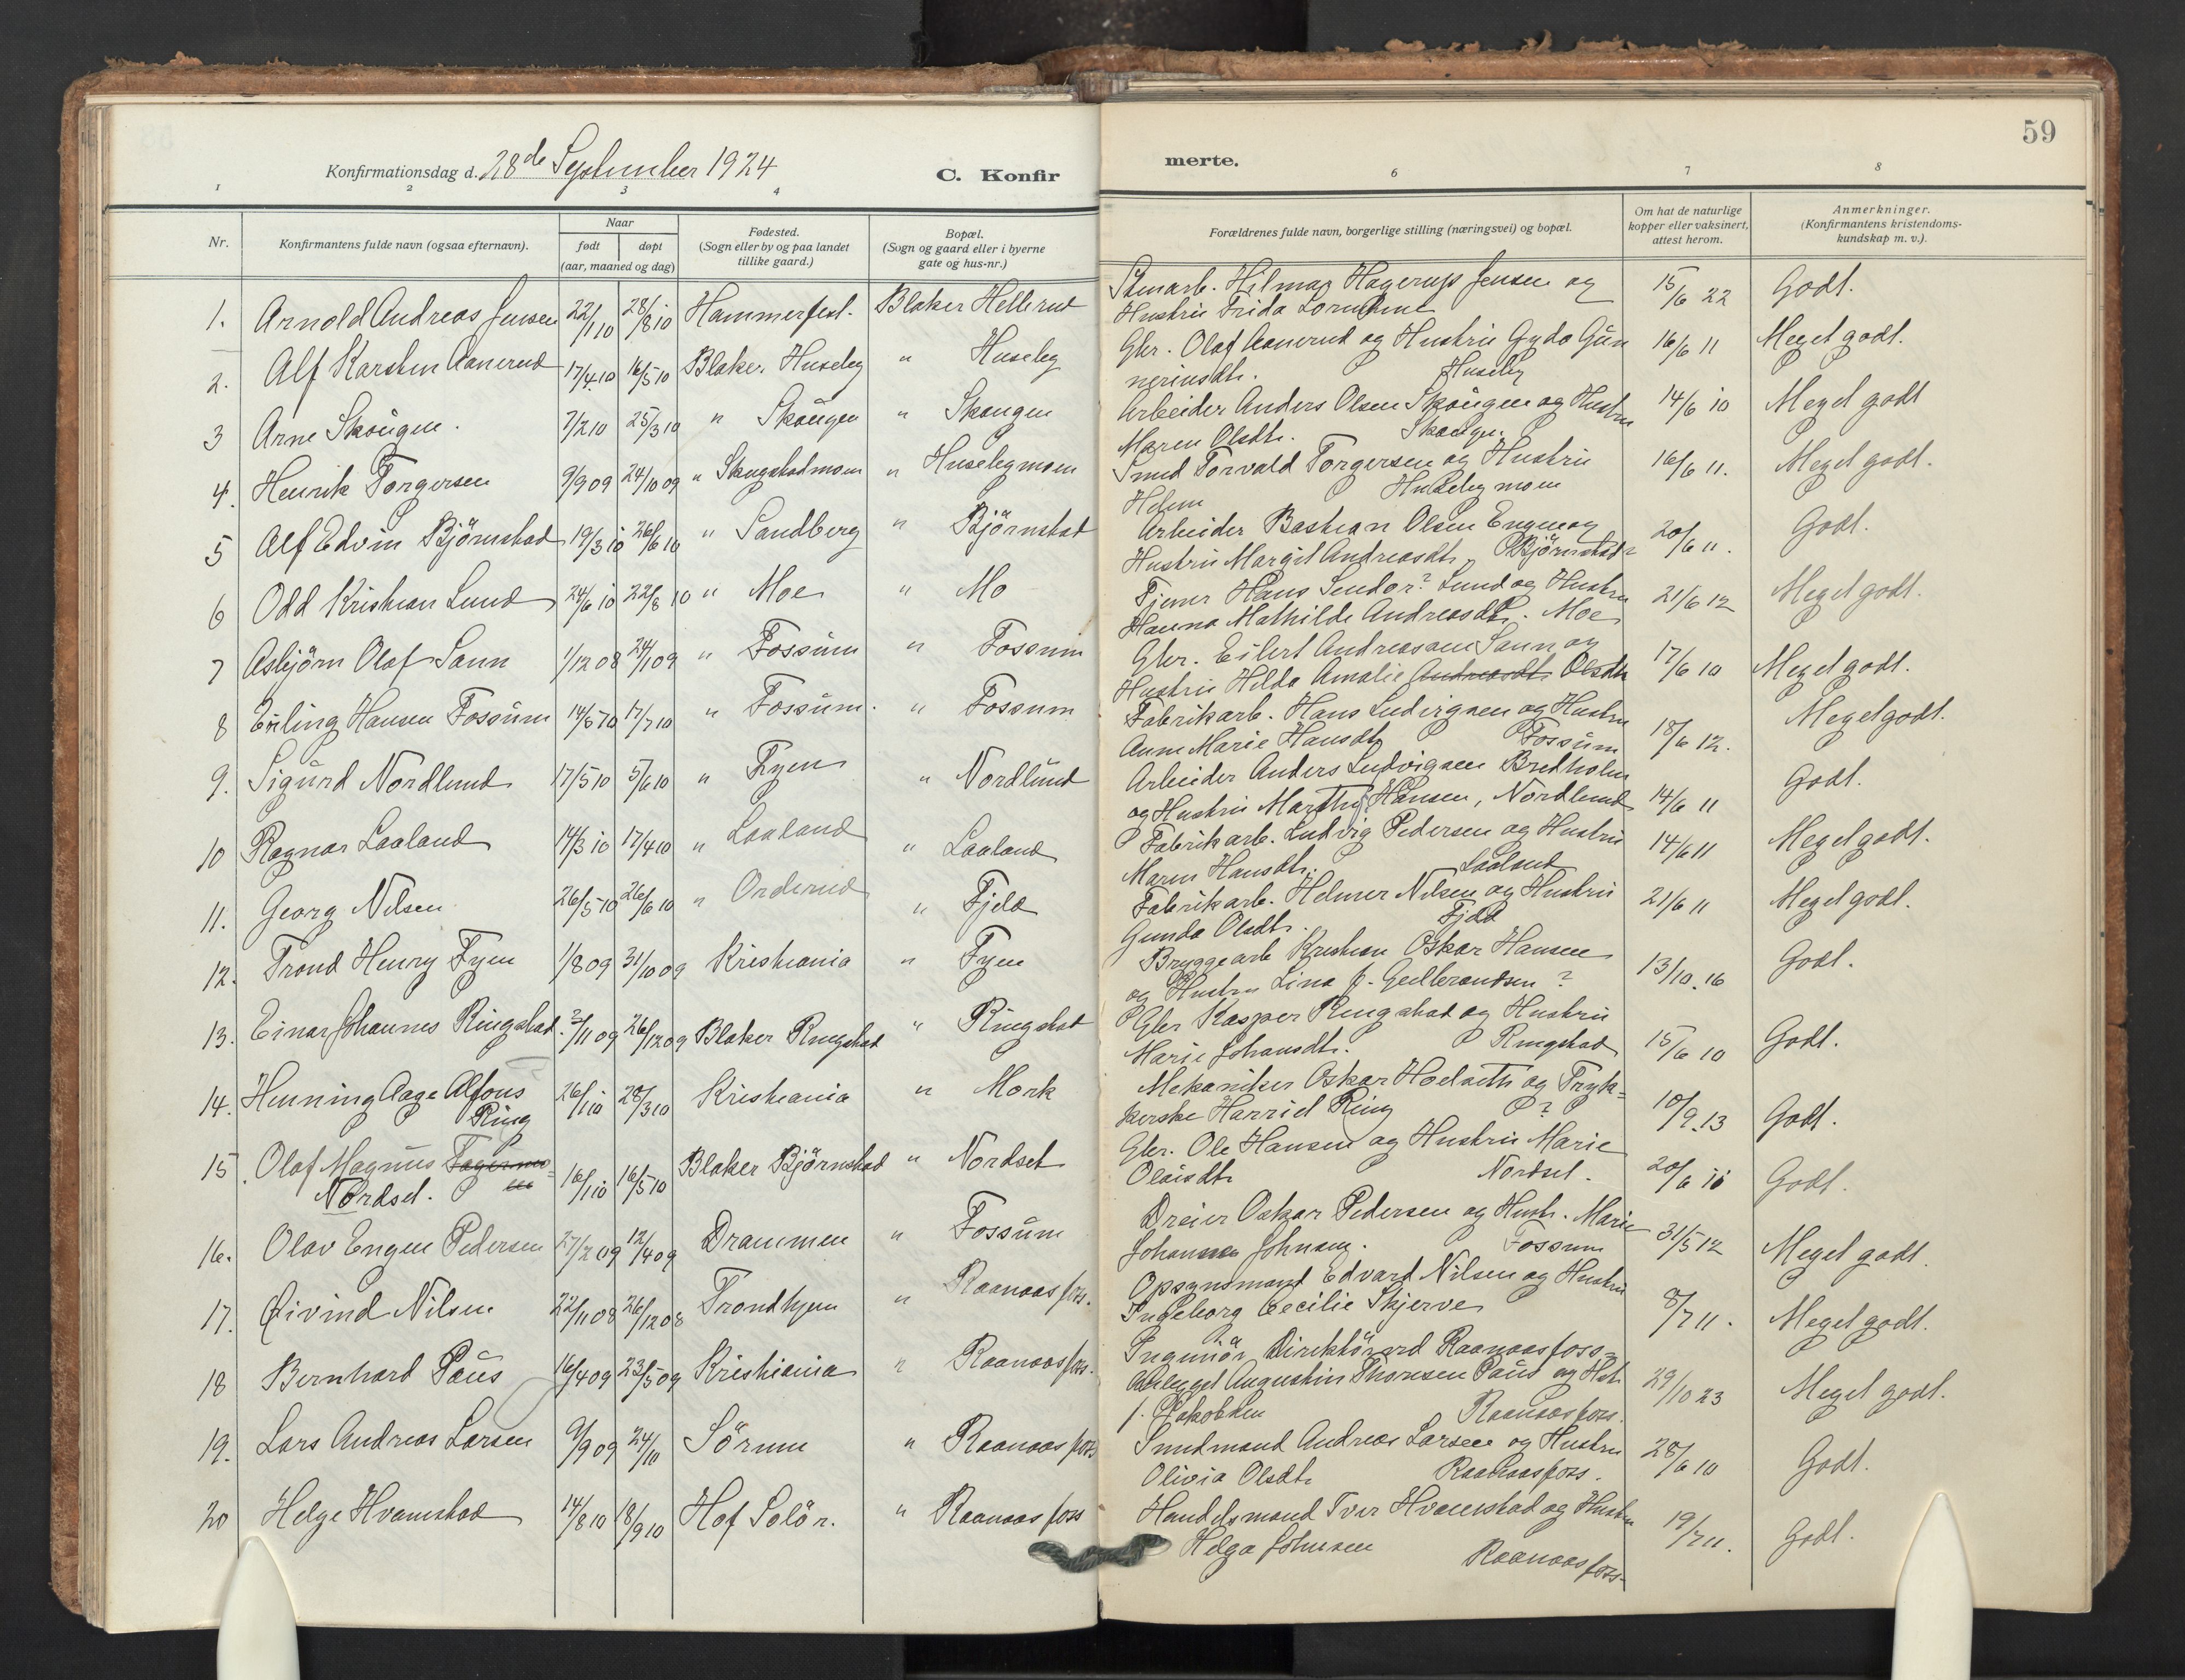 59
Konfirmationsdag d. 28de September 1924
C. Konfir
merte.
1 2 3 4 6 7 8
Nr.
Konfirmantens fulde navn (ogsaa efternavn).
Naar
født
døpt
(aar, maaned og dag)
Fødested.
(Sogn eller by og paa landet
tillike gaard.)
Bopæl.
(Sogn og gaard eller i byerne
gate og hus-nr.)
Forældrenes fulde navn, borgerlige stilling (næringsvei) og bopæl.
Om hat de naturlige
kopper eller vaksinert,
attest herom.
Anmerkninger.
(Konfirmantens kristendoms-
kundskap m. v.).
1. Arnold Andreas Jensen 22/1 10 28/8 10 Hammerfest. Blaker Hellerud
Hilmar Hagerup Jensen og
Hustru Frida 15/6 22 Godt.
2. Alf Karsten Aanerud 17/4 10 16/5 10 Blaker. Huseby " Huseby
Gbr. Olaf Aanerud og Hustru Gyda Gun
neriusdtr. Huseby 16/6 11 Meget godt.
3 Arne Skougen. 7/2 10 25/3 10 " Skougen " Skougen
Arbeider Anders Olsen Skougen og Hustru
Maren Olsdtr. Skougen. 14/6 10 Meget godt
4. Henrik Torgersen 9/9 09 24/10 09 " Skugstadmoen " Husebymoen
Smed Torvald Torgersen og Hustru
Helene Husebymoen 16/6 11. Meget godt.
5 Alf Edvin Bjørnstad 19/3 10 26/6 10 " Sandberg " Bjørnstad
Arbeider Bastian Olsen Engen og
Hustru Margit Andreasdtr. Bjørnstad? 20/6 11. Godt.
6 Odd Kristian Lund 24/6 10 22/8 10 " Moe " Mo
Hans ? Lund og Hustru
Hanna Mathilde Andreasdtr. Moe 21/6 12 Meget godt.
7 Asbjörn Olaf Sann 1/12 08 24/1 09 " Fossum " Fossum
Gbr. Eilert Andreassen Sann og
Hustru Hilda Amalie Andreasdtr. Olsdtr 17/6 10 Meget godt.
8 Erling Hansen Fossum 14/5 10 17/7 10 " Fossum. " Fossum
Fabrikarb. Hans Ludvigsen og Hustru
Anne Marie Hansdtr Fossum 18/6 12. Meget godt.
9. Sigurd Nordlund 17/5 10 5/6 10 " Fyen " Nordlund
Arbeider Anders Ludvigsen Bredholm
og Hustru Marthe Hansen, Nordlund 14/6 11 Godt.
10 Ragnar Laaland 14/3 10 17/4 10 " Laaland " Laaland
Fabrikarb. Ludvig Pedersen og Hustru
Maren Hansdtr. Laaland 14/6 11 Meget godt.
11. Georg Nilsen 26/5 10 26/6 10 " Orderud " Fjeld
Fabrikarb. Helmer Nilsen og Hustru
Gunda Olsdtr. Fjeld 21/6 11 Meget godt.
12. Trond Henry Fyen 1/8 09 31/10 09 Kristiania " Fyen
Bryggearb Kristian Oskar Hansen
og Hustru Lina f. Gulbrandsen ? 13/10.16 Godt.
13. Einar Johannes Ringstad. 2/11 09 26/12 09 Blaker Ringstad " Ringstad
Gbr Kasper Ringstad og Hustru
Marie Johansdtr. Ringstad 15/6 10 Godt.
14. Henning Aage Alfons
Ring 26/1 10 28/3 10 Kristiania " Mork
Mekaniker Oskar Hoelseth og Tryk=
kerske Harriet Ring ? 10/9.13 Godt.
15. Olaf Magnus
Nordset. 16/1 10 16/5 10 Blaker Bjørnstad " Nordset
Gbr. Ole Hansen og Hustru Marie
Olaisdtr Nordset. 20/6 10 Godt.
16. Olav Engen Pedersen 27/2 09 12/4 09 Drammen " Fossum
Dreier Oskar Pedersen og Hustr. Marie
Johansen. Fossum 31/5 12 Meget godt.
17. Øivind Nilsen 22/11 08 26/12 08 Trondhjem " Raanaasfoss.
Opsynsmand Edvard Nilsen og Hustru
Ingeborg Cecilie Skjerve 8/7 11. Meget godt.
18 Bernhard Paus 16/4 09 23/5 09 Kristiania " Raanaasfoss.
Ingeniör, Direktör ved Raanaasfoss=
Anlægget Augustin Thoresen Paus og Hstr.
f. Jakobsen Raanaasfoss. 29/10 23 Meget godt.
19. Lars Andreas Larsen 9/9 09 24/10 Sörum " Raanaasfoss
Andreas Larsen og Hustru
Olivia Olsdtr Raanaasfoss. 28/6 10 Godt.
20 Helge Hvamstad 14/8 10 18/9 10 Hof Solör. " Raanaasfoss
Handelsmand Iver Hvamstad og Hustru
Helga Johnsen Raanaasfoss. 19/7 11. Godt.